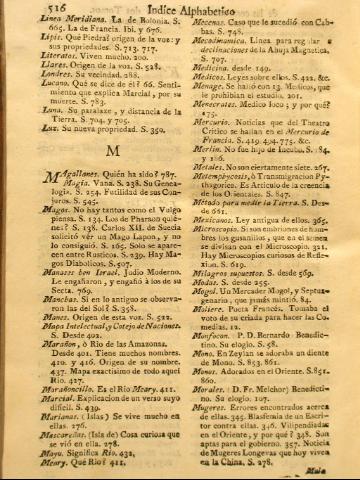 516 Indice Alphabetico
Linea Meridiana. La de Bolonia. S.
665. La de Francia. Ibi. y 676.
Lipis. Què Piedras origen de la voz: y
sus propriedades. S. 713. 717.
Literatos. Viven mucho. 200.
Llares. Origen de la voz. S. 528.
Londres. Su vecindad. 288.
Lucano. Què se dice de èl? 66. Sentimiento
que explica Marcial, por su
muerte. S. 783.
Luna. Su paralaxe, y distancia de la
Tierra. S. 704. y 705.
Luz. Su nueva propriedad. S. 350.
M
Magallanes. Quièn ha sido? 787.
Magia. Vana. S. 238. Su Genealogia.
S. 254. Futilidad de sus Conjuros.
S. 545.
Magos. No hay tantos como el Vulgo
piensa. S. 134. Los de Pharaon quiénes?
S. 138. Carlos XII. de Suecia
solicitó vèr un Mago Lapon, y no
lo consiguió. S. 265. Solo se aparecen
entre Rusticos. S. 239. Hay Magos
Diabolicos. S. 507.
Manases ben Israel. Judio Moderno.
Le engañaron, y engañó à los de su
Secta. 769.
Manchas. Si en lo antiguo se observaron
las del Sol? S. 358.
Manes. Origen de esta voz. S. 522.
Mapa Intelectual, y Cotejo de Naciones.
S. Desde 402.
Marañon, ò Rio de las Amazonas.
Desde 401. Tiene muchos nombres.
420. y 416. Origen de su nombre.
437. Mapa exactisimo de todo aquel
Rio. 427.
Marañoncillo. Es el Rio Meary. 411.
Marcial. Explicacion de un verso suyo
dificil. S. 439.
Marianas. (Islas) Se vive mucho en
ellas. 276.
Mascareñas. (Isla de) Cosa curiosa que
se viò en ella. 278.
Mayu. Significa Rio. 432.
Meary. Què Rio? 411.
Mecenas. Caso que le sucedió con Cabbas.
S. 748.
Mecodinamica. Linea, para regular
declinaciones de la Abuja Magnetica.
S. 707.
Medicina, desde 149.
Medicos. Leyes sobre ellos. S. 422. &c.
Menage. Se halló con 13. Medicos, que
le prohibian el estudio. 201.
Menecrates. Medico loco; y por què?
175.
Mercurio. Noticias que del Theatro
Critico se hallan en el Mercurio de
Francia. S. 419. 434. 775. &c.
Merlin. No fue hijo de Incubo. S. 184.
y 216.
Metales. No son ciertamente siete. 267.
Metempsycosis, ò Transmigracion Pythagorica.
Es Articulo de la creencia
de los Orientales. S. 847.
Método para medir la Tierra. S. Desde
661.
Mexicanos. Ley antigua de ellos. 365.
Microscopio. Si son embriones de hombres
los gusanillos, que en el semen
se divisan con el Microscopio. 311.
Hay Microscopios curiosos de Reflexion.
S. 619.
Milagros supuestos. S. desde 569.
Modas. S. desde 255.
Mogol. Un Mercader Mogol, y Septuagenario,
que jamás mintió. 84.
Moliere. Poeta Francés. Tomaba el
voto de su criada para hacer las Comedias.
12.
Monfaucon. P. D. Bernardo Benedictino.
Su elogio. S. 58.
Mono. En Zeylan se adoraba un diente
de Mono. S. 853. 861.
Monos. Adorados en el Oriente. S. 851.
860.
Morales. (D. Fr. Melchor) Benedictino.
Su elogio. 107.
Mugeres. Errores encontrados acerca
de ellas. 345. Blasfemia de un Escritor
contra ellas. 346. Vilipendiadas
en el Oriente, y por què? 348. Son
aptas para el gobierno. 357. Noticia
de Mugeres Longevas que hoy viven
en la China. S. 278.